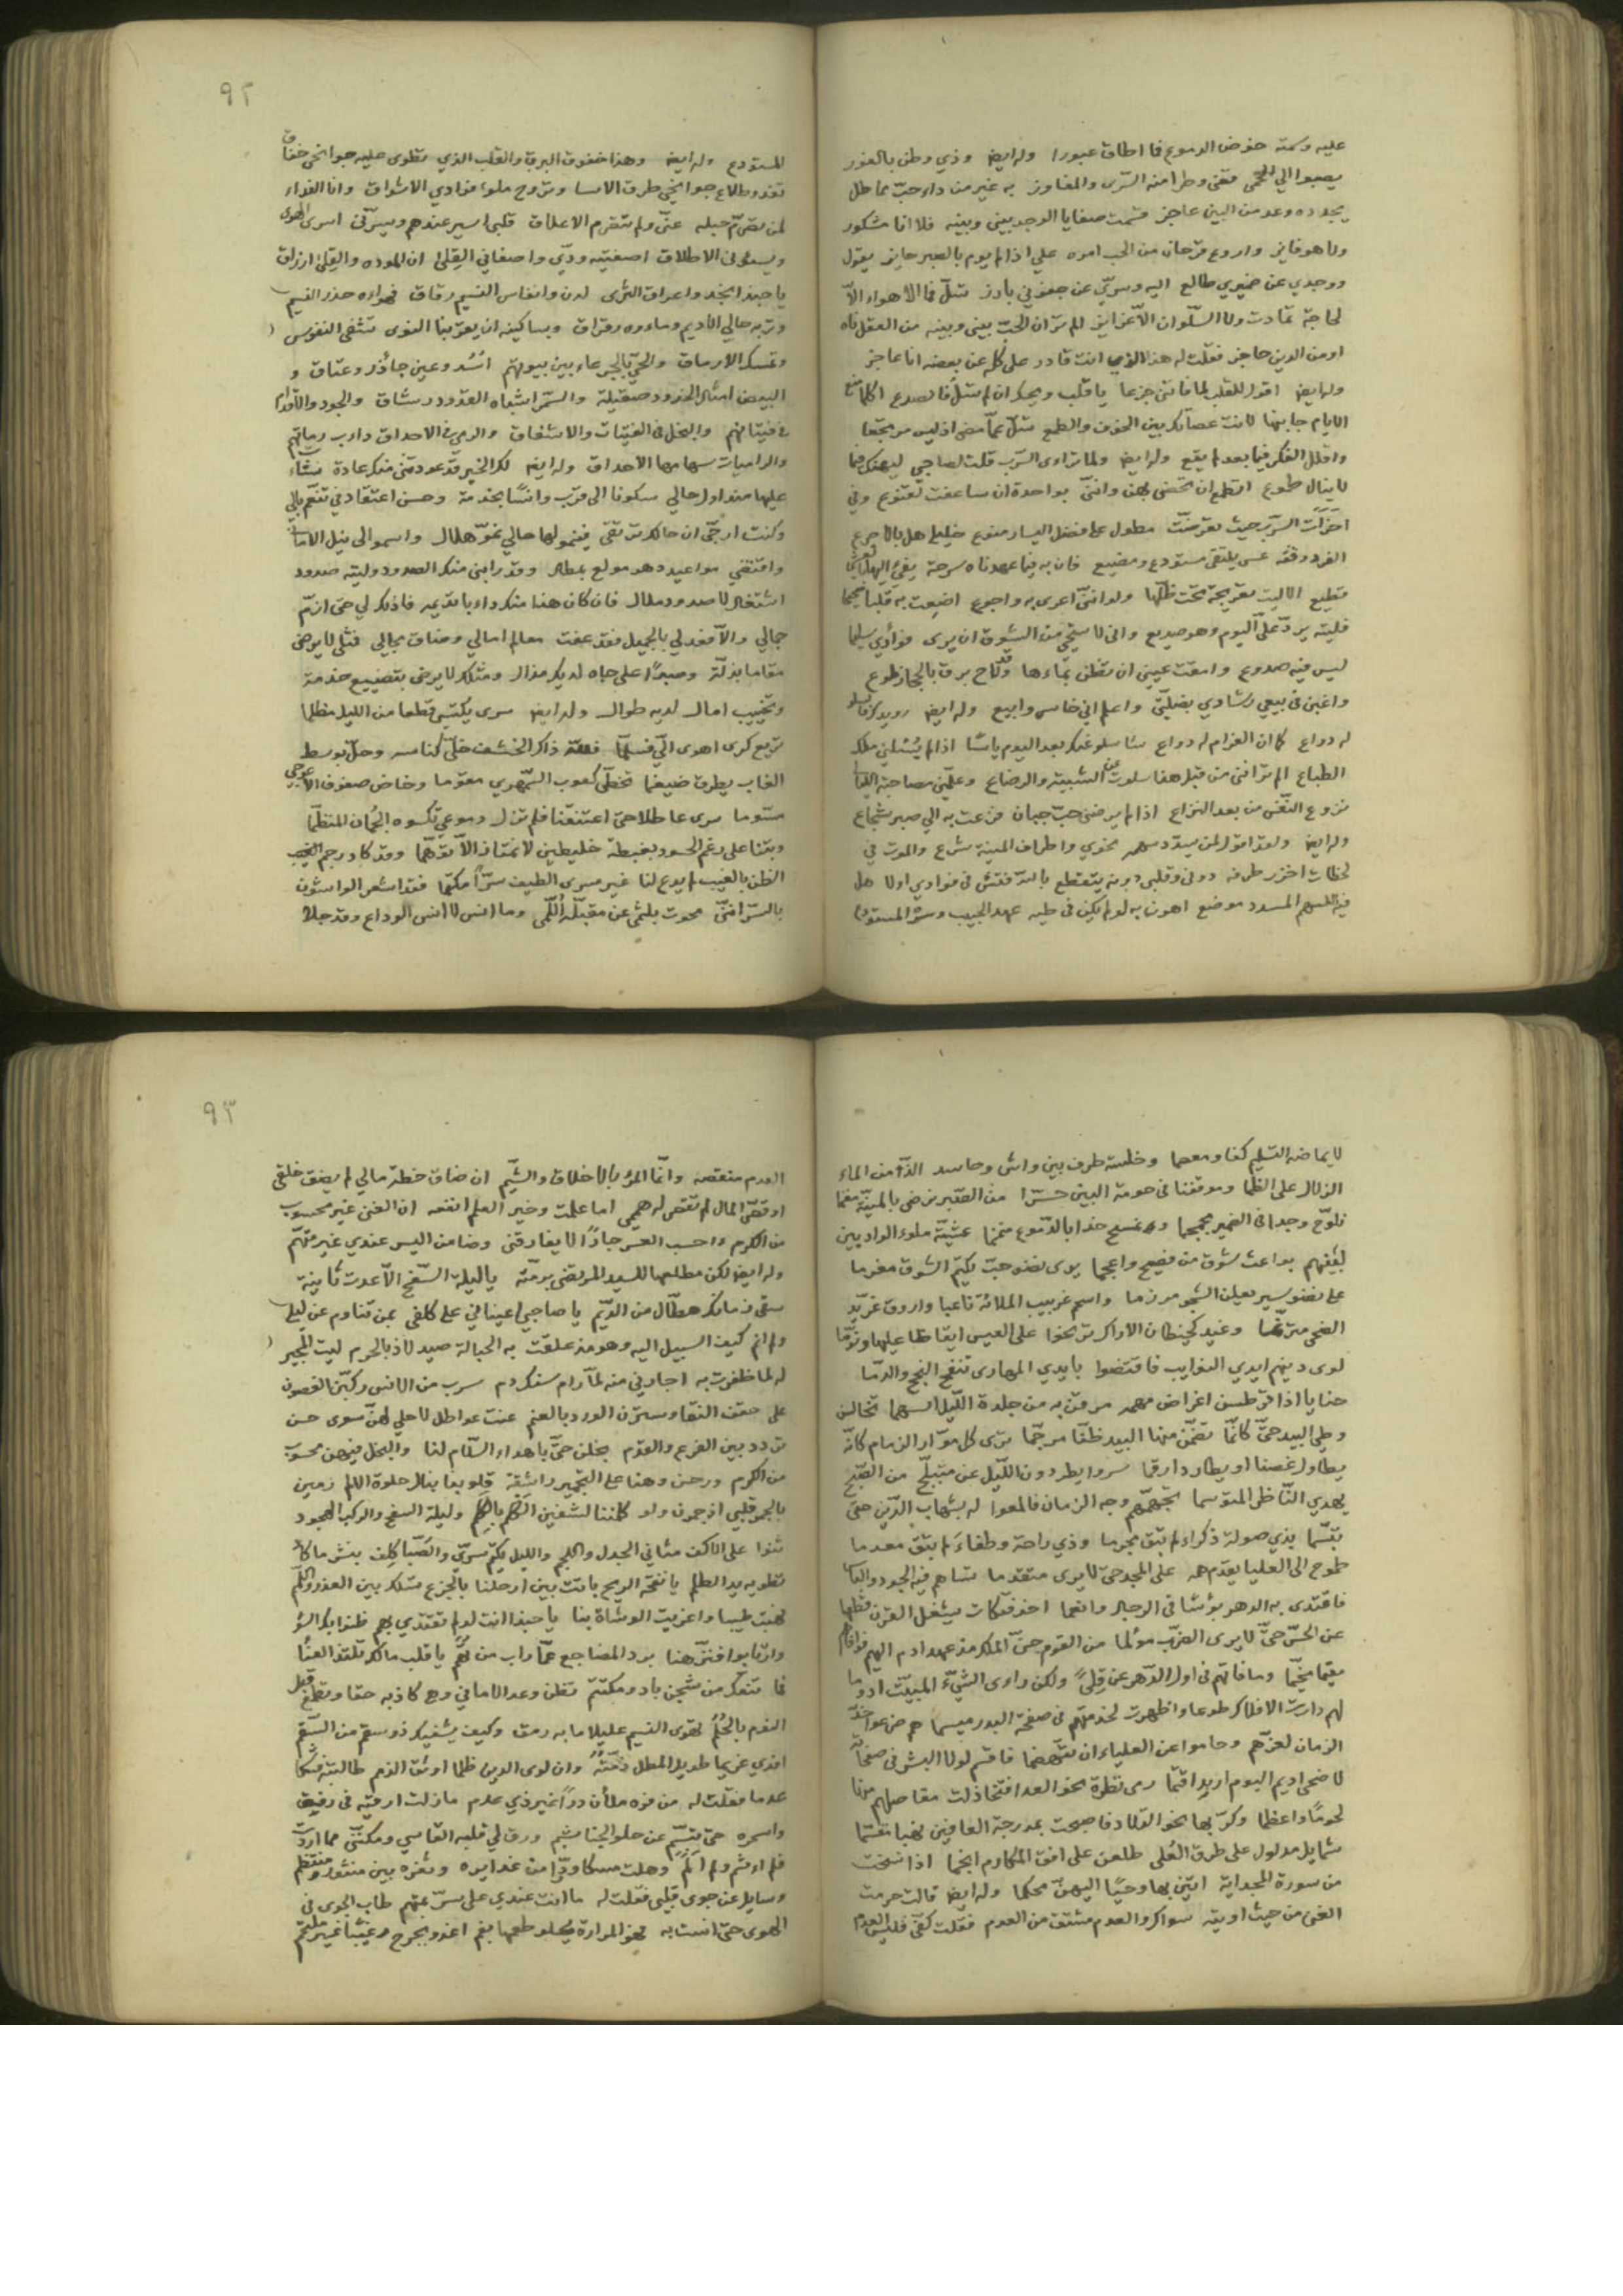 عليه وكمته خوض الدموع فما اطاق عبورا وله ايض وذي وطن بالغور
يصبوا الي الحمى قضى وطرا منه السرى والمفاوز به غير من داء حب مماطل
يجدده وعد من البين عاجز قسمت صفايا الوجد بيني وبينه فلا انا مشكور
ولا هو فايز واروع من الحب امره على اذا لم يوم بالصبر حايز يقول
ووجدي عن ضميري طالع اليه وسري عن جفوني بارز تسل فما الاهواء الا
لجاجة تمادت ولا السلوان الا غرايز الم تر ان الحب بيني وبينه من العقل ناه
او من الدين حاجز فقلت له هذا الذي انت قادر على كله عن بعضه انا عاجز
وله ايض اقول للقلب لما فاتني جزعا يا قلب ويحك ان لم تسل فانصدع
الايام جانبها لانت عصاك بين الخوف والطمع تسل عما مضى اذ ليس مرتجعا
واقلل الفكر فيما بعد لم يقع وله ايض ولما تراءى السرب قلت لصاحبي ليهنك فيما
لا ينال طموع اتطمع ان تحضى بهن وانني بواحدة ان ساعفت لقنوع وفي
السرب حيث تعرضت مطول على فضل اليسار منوع خليلي هل بالاجرع
الفرد وقفة عسى يلتقي مستودع ومضيع فان به فيما عهدناه سرحة يفيء اليها
قطيع الا ليت تعريجة تحت ظلها ولو انني اعرى به واجوع اضيعت به قلبا صحيحا
فليته يرد علي اليوم وهو صديع واني لاستحيي من الشوق ان يرى فؤادي سليما
ليس فيه صدوع وامقت عيني ان تضن بماءها وقد لاح برق بالحجاز طوع
واغبن في بيعي رشادي بضلتي واعلم اني خاسر وابيع وله ايض رويدك
له دواع كما ان الغرام له دواع سأسلو عنك بعد اليوم يأسا اذا لم يسلني ملك
الطباع الم ترانني من قبل هذا سلوت عن الشبيبة والرضاع وعلمني مصاحبة الليالي
نزوع النفس من بعد النزاع اذا لم يرضني حب جبان فزعت به الى صبر شجاع
وله ايض ولقد اقول لمن يسدد سهمه نحوي واطراف المنية شرع والموت في
لحظات اخزر طرفه دوني وقلبي دونه يتقطع بالله فتش في فؤادي اولا هل
فيه للسهم المسدد موضع اهون به لو لم يكن في طيه عهد الحبيب وسره المستودع
٩٢
للمستودع وله ايض وهذا خفوق البرق والقلب الذي تطوى عليه جوانحي خفاق
تغدو طلائع جوانحي طرق الاسا وتروح ملوء فؤادي الاشواق وانا الفداء
لمن تصرم حبله عني ولم تتصرم الاعلاق قلبي اسير عندهم ويسرني اسرى الهوى
ويسوءني الاطلاق اصفيته ودي واصفاني القلى ان الموده والقلى ارزاق
يا حبذا نجد واعراق الثرى لدن وانفاس النسيم رقاق فهواءه حذر النسيم
وتربه حالي الاديم وماءوه رقراق وبساكنيه ان يعز بنا النوى تشفى النفوس
وتمسك الارماق والحي بالجرعاء بين بيوتهم اسد وعين جآذر وعتاق و
البيض امثال الخدود صقيلة والسمر اشباه القدود رشاق والجود والاقدام
في فتيانهم والبخل في الفتيات والاشفاق والرمي في الاحداق داءب رماتهم
والراميات سهامها الاحداق وله ايض لك الخير قد عودتني منك عادة
عليها منذ اول حالي سكونا الى قرب وانسا بخدمة وحسن اعتقاد في تنعم بالي
وكنت ارجى ان حالك ترتقى فينمو لها حالي نمو هلال واسموا الى نيل الاماني
واقتضي مواعيد دهر مولع بمطال وقد رابني منك الصدود وليته صدود
اشتغال لا صدود ملال فان كان هذا منك داء باقديمه فاذكر لي حتى ازم
جمالي والا فعد لي بالجميل فقد عفت معالم امالي وضاق مجالي فمثلي لا يرضى
مقاما بذلة وصبرا على جاه لديك مذال ومثلك لا يرضى بتضييع خدمة
وتخييب امال لديه طوال وله ايض سرى يكتسى قطعا من الليل مظلما
تربع كرى اهوى الي فسلما فقلت ذاك الخشف خلى كناسه وحل بوسط
الغاب يطرق ضيغما تخطى كعوب السمهري مقوما وخاض صفوف الاعوجي
مسوما سرى عاطلا حتى اعتنقنا فلم تزل دموعي تكسوه الجمان المنظما
وبتنا على رغم الحسود بغبطة خليطين لا نمتاز الا توهما وقد كاد رجم الغيب
الظن بالغيب لم يدع لنا غير مسرى الطيف سرا مكتما فقد اشعر الواشون
بالسر انني محوت بلثمي عن مقبله اللمى وما انس لا انس الوداع وقد جلا
لايماضه التسليم كفا ومعصما وخلسة طرف بين واش وحاسد الذ من الماء
الزلال على الظما وموقفنا في حومة البين حسرا من الصبر نرضى بالمنية مغنما
نلوح وجدا في الضمير مجمجما ونمسح خدا بالدموع منمنما عشية ملوء الواديين
لبينهم بواعث شوق من فصيح واعجما يوى نضو حب يكتم الشوق مغرما
على نضو سير يعلن الشجو مرزما واسحم غربيب الملاءة ناعبا واروق غريد
الضحى مترنما وغيد كخيطان الاراك ترنحوا على العيس ايقاظا عليها ونوما
لوى دينهم ايدي النوايب فاقتضوا بايدي المهارى تنضح النجع والدما
حنايا اذا قرطسن اغراض مهمه مرقن به من جلدة الليل اسهما تخالسن
وطي البيد حتى كانما تضمن منها البيد ظنا مرجما ترى كل موار الزمام كانه
يطاول غصنا او يطارد ارقما سروا يطردون الليل عن متبلج من الصبح
يهدي الناظر المتوسما تجهمهم وجه الزمان فالمعوا له بشهاب الدين حتى
تبسما بذي صولة ذكراء لم تبق مجرما وذي راحة وطفاء لم تبق معدما
طموح الى العليا يقدم همه على المجد حتى لا يرى متقدما تساهم فيه الجود والباس
فاقتدى به الدهر بؤسا في الرجال وانعما اخو فتكات يشغل القرن
عن الحس حتى لا يرى الضرب مؤلما من القوم حن الملك مذ عهد ادم اليهم
مقيما مخيما وما فاتهم في اول الدهر عن قلى ولكن راوى الشيء المبيت
لهم دارت الافلاك طوعا واظهرت لخدمتهم في صفحة البدر ميسما هم
الزمان لعزهم وحاموا عن العلياء ان تتهضما فاقسم لولا البشر في
لاضحى اديم اليوم اربد اقتما رمى نظرة نحو العدا فتخاذلت مفاصلهم
لحوما واعظما وكر بها نحو التلاد فاصبحت بمدرجة العافين نهبا مقسما
شمايل مدلول على طرق العلى طلعن على افق المكارم انجما اذا نسخت
من سورة المجد اية اتين بها وحيا اليهن محكما وله ايض قالت حرمت
الغنى من حيث اوتيته سواك والعدم مشتق من العدم فقلت كفي فليس العدم
٩٣
العدم منقصة وانما المرء بالاخلاق والشيم ان ضاق خطة مالي لم يضق خلقي
او قصر المال لم تقصر له هممي اما علمت وخير العلم انفعه ان الغنى غير محسوب
من الكرم واحسب العسر جارا لا يفارقني وضامن اليسر عندي غير متهم
وله ايض لكن مطلعها للسيد المرتضى برمته يا ليلة السفح الا عدت ثانية
سقى زمانك هطال من الديم يا صاحبي اعيناني على كلفي بمن تناوم عن ليلي
ولم انم كيف السبيل اليه وهو مذ علقت به الحبالة صيد لاذ بالحرم ليت المجير
له لما ظفرت به اجارني منه لما رام سفك دم سرب من الانس ركبن الغصون
على حقف النقا وسترن الورد بالعنم عنت عواطل لا حلي لهن سوى حسن
تردد بين الفرع والقدم بخلن حتى باهداء السلام لنا والبخل فيهن محسوب
من الكرم ورحن وهنا على التجمير راشقة قلوبنا بنبال حلوة الالم رمين
بالجمر قلبي اذ جمرن ولو كلمننا لشفين الكلم بالكلم وليلة السفح والركب الهجود
ثنوا على الاكف مثاني الجدل واللجم والليل يكتم سري والصبا كلف بنشر ما كاد
تطويه يد الظلم يا نفحة الريح باتت بين ارحلنا بالجزع تسلك بين العذر واللمم
نممت طيبا واغريت الوشاة بنا يا حبذا انت لو لم تقتدي بهم ظنوا بك السؤ
وارتابوا فنزهنا برد المضاجع عما راب من تهم يا قلب مالك تلتذ العنا
فما تنفك من شجن باد ومكتتم تظن وعد الاماني وهي كاذبه حقا وتطمع
النوم بالحلم تهوى النسيم عليلا ما به رمق وكيف يشفيك ذو سقم من السقم
افدي غريما طويل المطل ذمته وان لوى الدين ظلما اوثق الذمم طالبته
عدما فقلت له من فوه ملأن درا غير ذي عدم مازلت ارقيه في رفق
واسحره حتى تبسم عن حلو الجنا شبم ورق لي قلبه القاسي ومكنني مما اردت
فلم اءثم ولم الم وهلت مسكا ودرا من غدايره وثغره بين منثور ومنتظم
وسايل عن جوى قلبي فقلت له ما انت عندي على سر بمتهم طاب الجوى في
الهوى حتى انست به فهو المرارة يحلو طعمها بفم اغدو بجرح رغيبا غير ملتئم